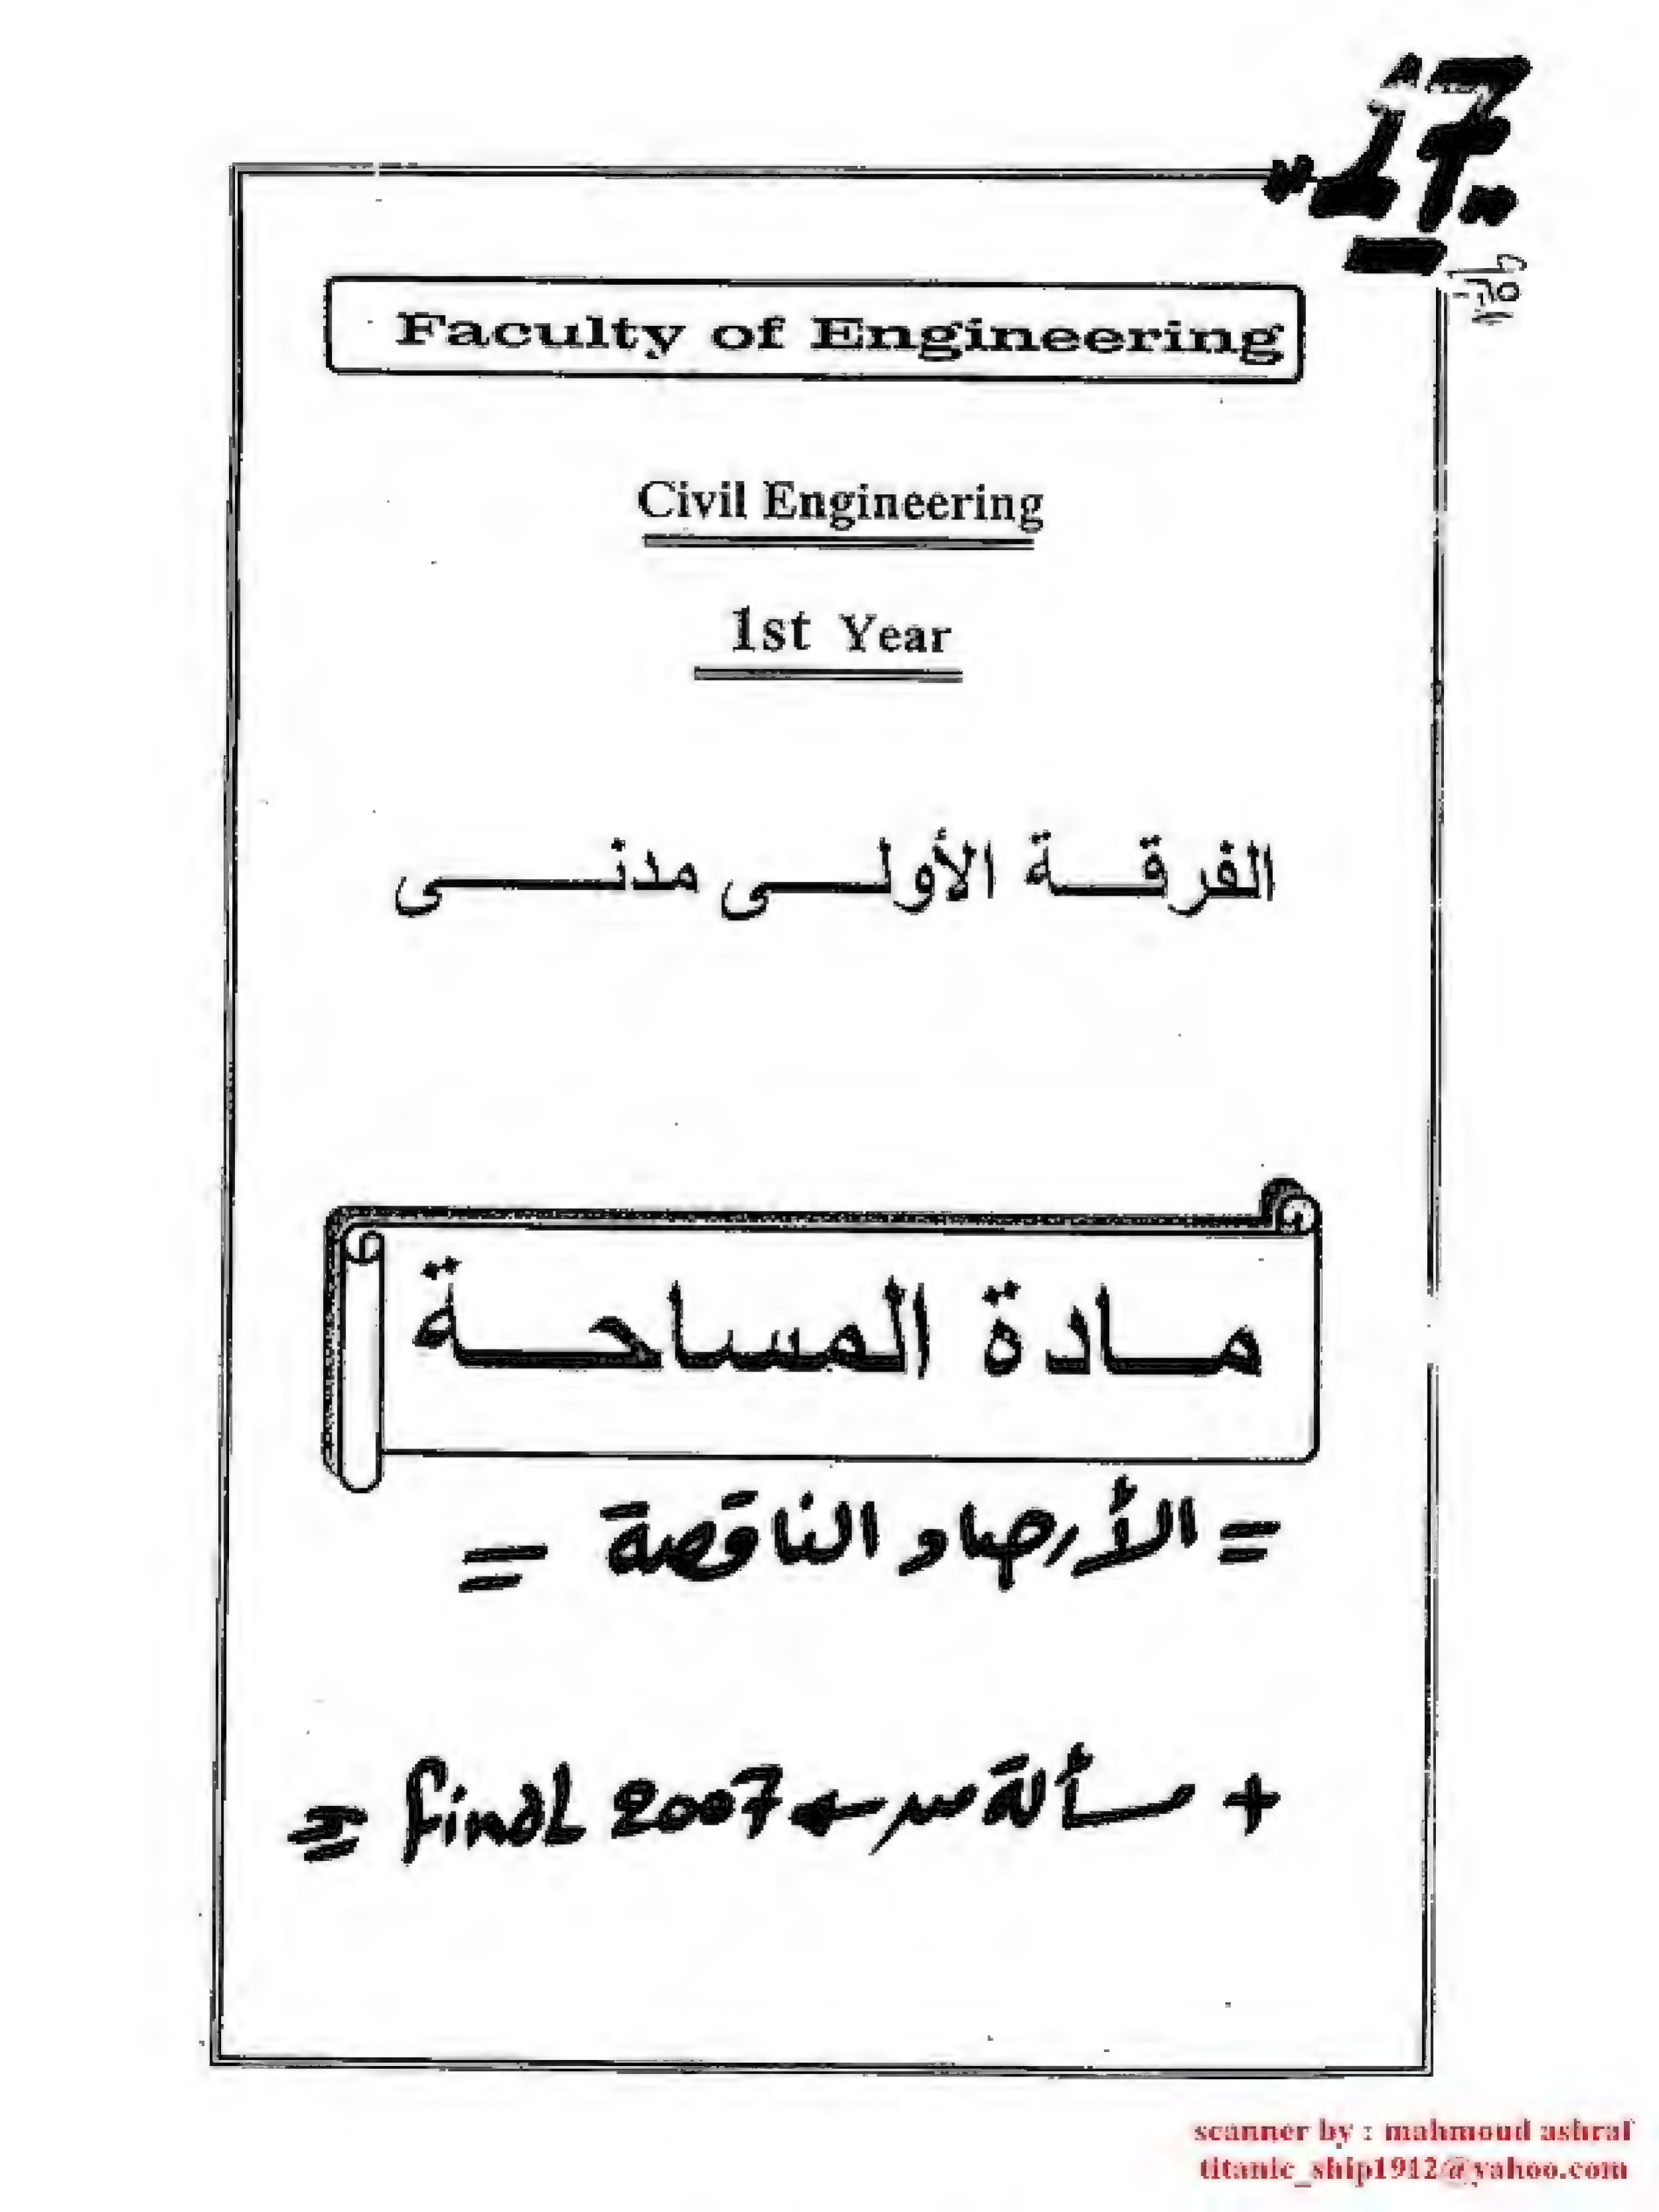 "17"
Faculty of Engineering
Civil Engineering
1st Year
الفرقة الأولى مدنى
مادة المساحة
= الأرصاد الناقصة =
+ مسألة من ← final 2007 =
scanner by : mahmoud ashraf
titanic_ship1912@yahoo.com